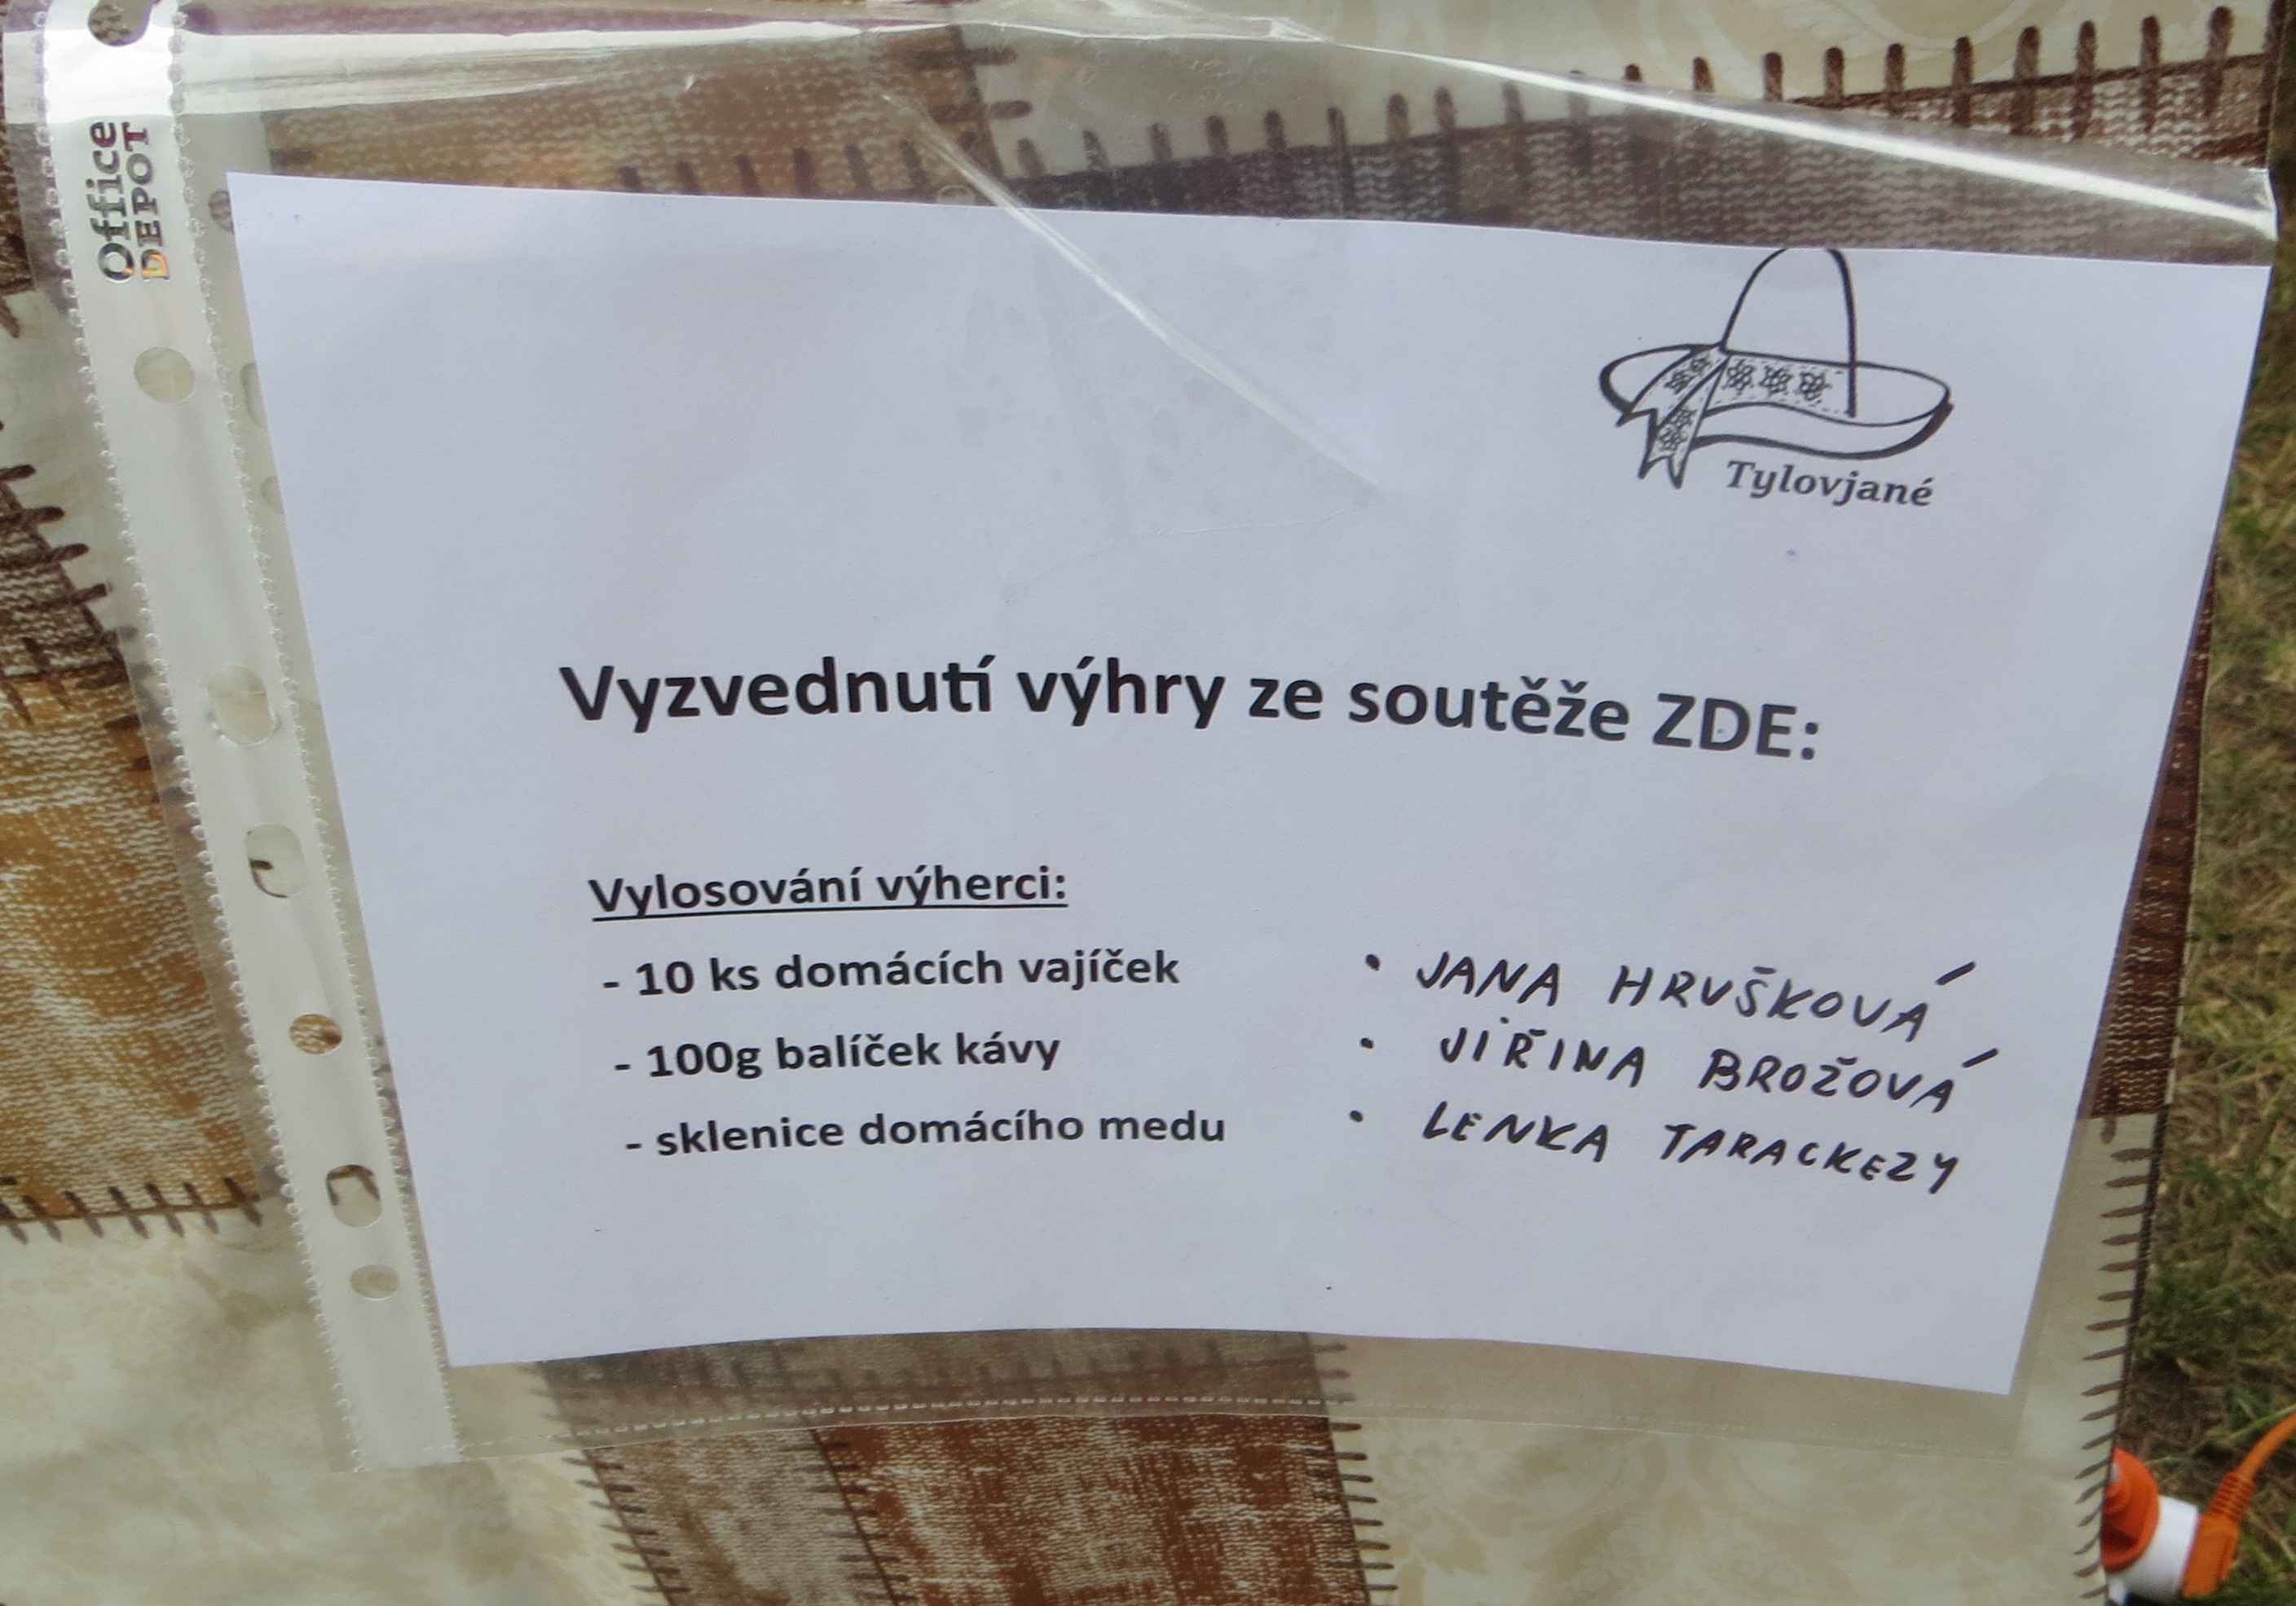 Office
DEPOT
Tylovjané
Vyzvednutí výhry ze soutěže ZDE:
Vylosování výherci:
- 10 ks domácích vajíček • JANA HRUŠKOVÁ
- 100g balíček kávy • JIŘINA BROŽOVÁ
- sklenice domácího medu • LENKA TARACKEZY